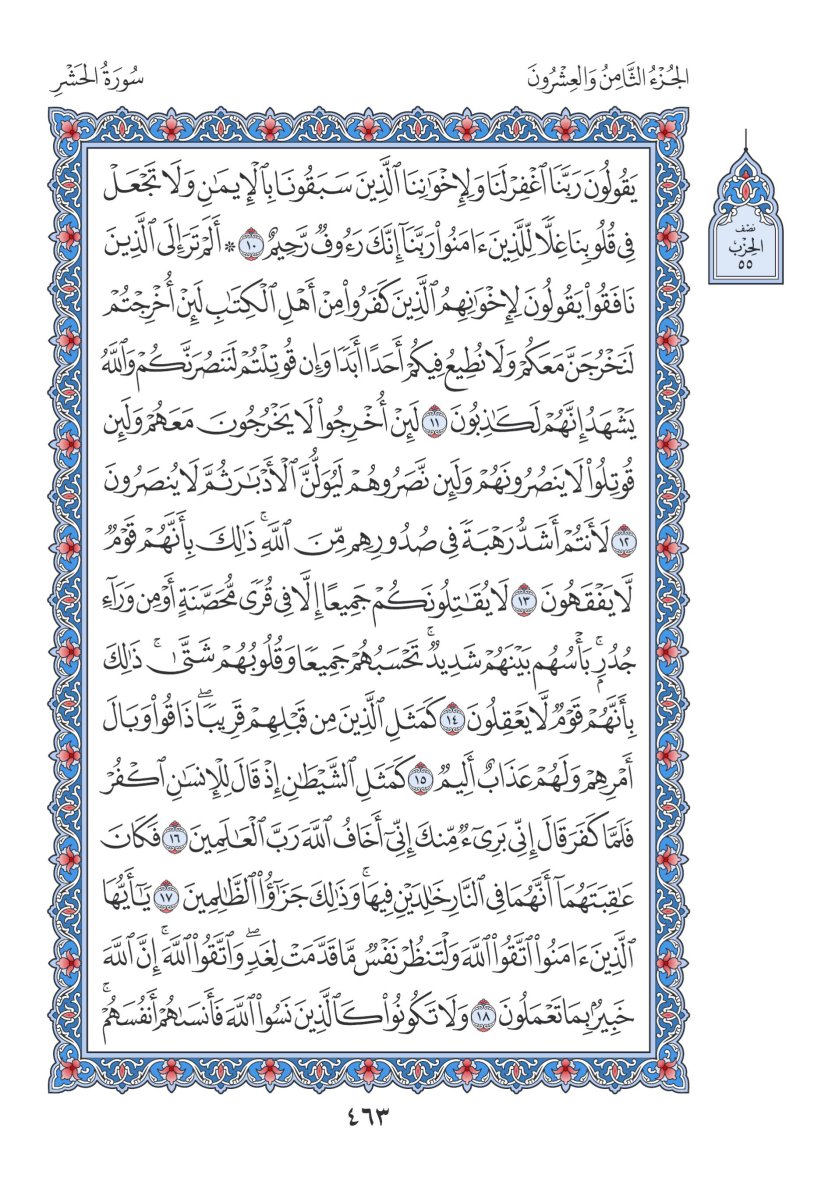 الجُزْءُ الثَّامِنُ وَالعِشْرُونَ
سُورَةُ الحَشْرِ
يَقُولُونَ رَبَّنَا ٱغْفِرْ لَنَا وَلِإِخْوَٰنِنَا ٱلَّذِينَ سَبَقُونَا بِٱلْإِيمَٰنِ وَلَا تَجْعَلْ
فِى قُلُوبِنَا غِلًّا لِّلَّذِينَ ءَامَنُوا۟ رَبَّنَآ إِنَّكَ رَءُوفٌ رَّحِيمٌ ١٠ * أَلَمْ تَرَ إِلَى ٱلَّذِينَ
نَافَقُوا۟ يَقُولُونَ لِإِخْوَٰنِهِمُ ٱلَّذِينَ كَفَرُوا۟ مِنْ أَهْلِ ٱلْكِتَٰبِ لَئِنْ أُخْرِجْتُمْ
لَنَخْرُجَنَّ مَعَكُمْ وَلَا نُطِيعُ فِيكُمْ أَحَدًا أَبَدًا وَإِن قُوتِلْتُمْ لَنَنصُرَنَّكُمْ وَٱللَّهُ
يَشْهَدُ إِنَّهُمْ لَكَٰذِبُونَ ١١ لَئِنْ أُخْرِجُوا۟ لَا يَخْرُجُونَ مَعَهُمْ وَلَئِن
قُوتِلُوا۟ لَا يَنصُرُونَهُمْ وَلَئِن نَّصَرُوهُمْ لَيُوَلُّنَّ ٱلْأَدْبَٰرَ ثُمَّ لَا يُنصَرُونَ
١٢ لَأَنتُمْ أَشَدُّ رَهْبَةً فِى صُدُورِهِم مِّنَ ٱللَّهِ ۚ ذَٰلِكَ بِأَنَّهُمْ قَوْمٌ
لَّا يَفْقَهُونَ ١٣ لَا يُقَٰتِلُونَكُمْ جَمِيعًا إِلَّا فِى قُرًى مُّحَصَّنَةٍ أَوْ مِن وَرَآءِ
جُدُرٍۭ ۚ بَأْسُهُم بَيْنَهُمْ شَدِيدٌ ۚ تَحْسَبُهُمْ جَمِيعًا وَقُلُوبُهُمْ شَتَّىٰ ۚ ذَٰلِكَ
بِأَنَّهُمْ قَوْمٌ لَّا يَعْقِلُونَ ١٤ كَمَثَلِ ٱلَّذِينَ مِن قَبْلِهِمْ قَرِيبًا ۖ ذَاقُوا۟ وَبَالَ
أَمْرِهِمْ وَلَهُمْ عَذَابٌ أَلِيمٌ ١٥ كَمَثَلِ ٱلشَّيْطَٰنِ إِذْ قَالَ لِلْإِنسَٰنِ ٱكْفُرْ
فَلَمَّا كَفَرَ قَالَ إِنِّى بَرِىٓءٌ مِّنكَ إِنِّىٓ أَخَافُ ٱللَّهَ رَبَّ ٱلْعَٰلَمِينَ ١٦ فَكَانَ
عَٰقِبَتَهُمَآ أَنَّهُمَا فِى ٱلنَّارِ خَٰلِدَيْنِ فِيهَا ۚ وَذَٰلِكَ جَزَٰٓؤُا۟ ٱلظَّٰلِمِينَ ١٧ يَٰٓأَيُّهَا
ٱلَّذِينَ ءَامَنُوا۟ ٱتَّقُوا۟ ٱللَّهَ وَلْتَنظُرْ نَفْسٌ مَّا قَدَّمَتْ لِغَدٍ ۖ وَٱتَّقُوا۟ ٱللَّهَ ۚ إِنَّ ٱللَّهَ
خَبِيرٌۢ بِمَا تَعْمَلُونَ ١٨ وَلَا تَكُونُوا۟ كَٱلَّذِينَ نَسُوا۟ ٱللَّهَ فَأَنسَىٰهُمْ أَنفُسَهُمْ ۚ
نصف
الحِزْب
٥٥
٤٦٣